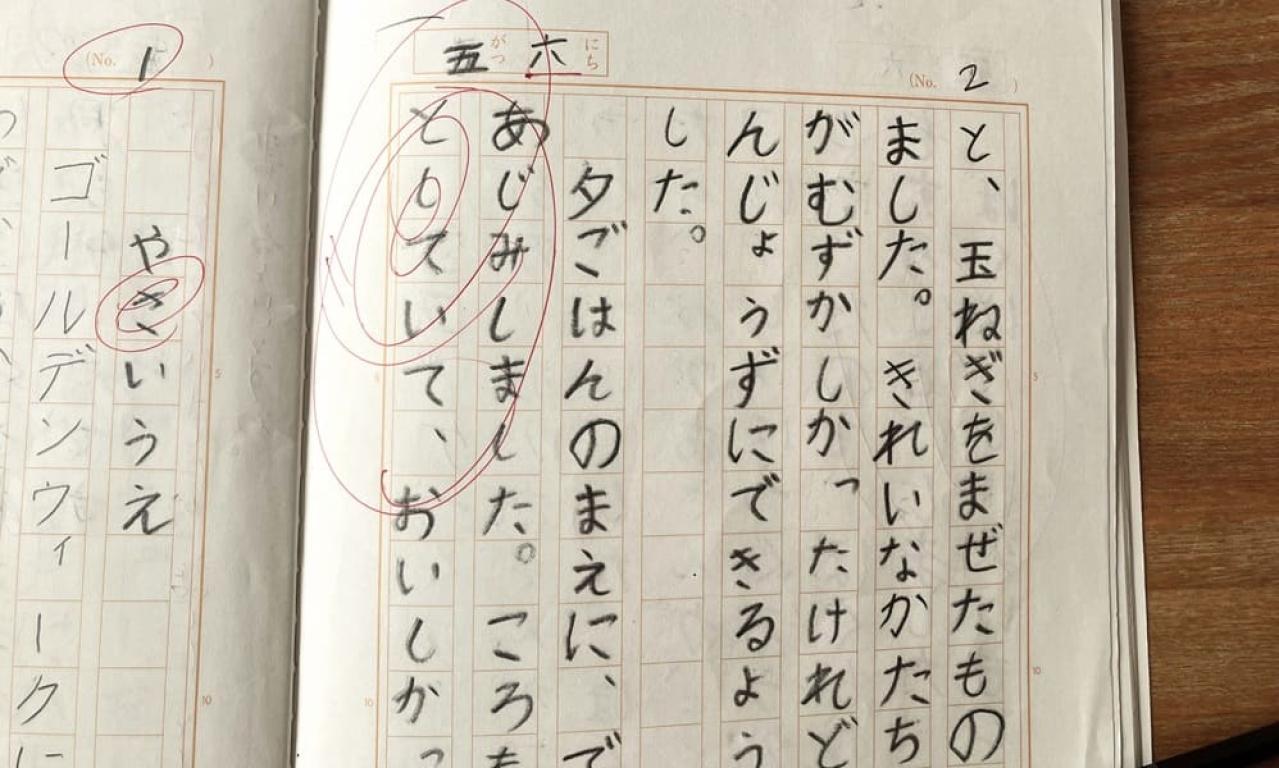 五がつ六にち
(No. 2)
と、玉ねぎをまぜたもの
ました。きれいなかたち
がむずかしかったけれど
んじょうずにできるよう
した。
夕ごはんのまえに、で
あじみしました。ころも
としていて、おいしかっ
5
10
5
10
(No. 1)
やさいうえ
ゴールデンウィークに
5
10